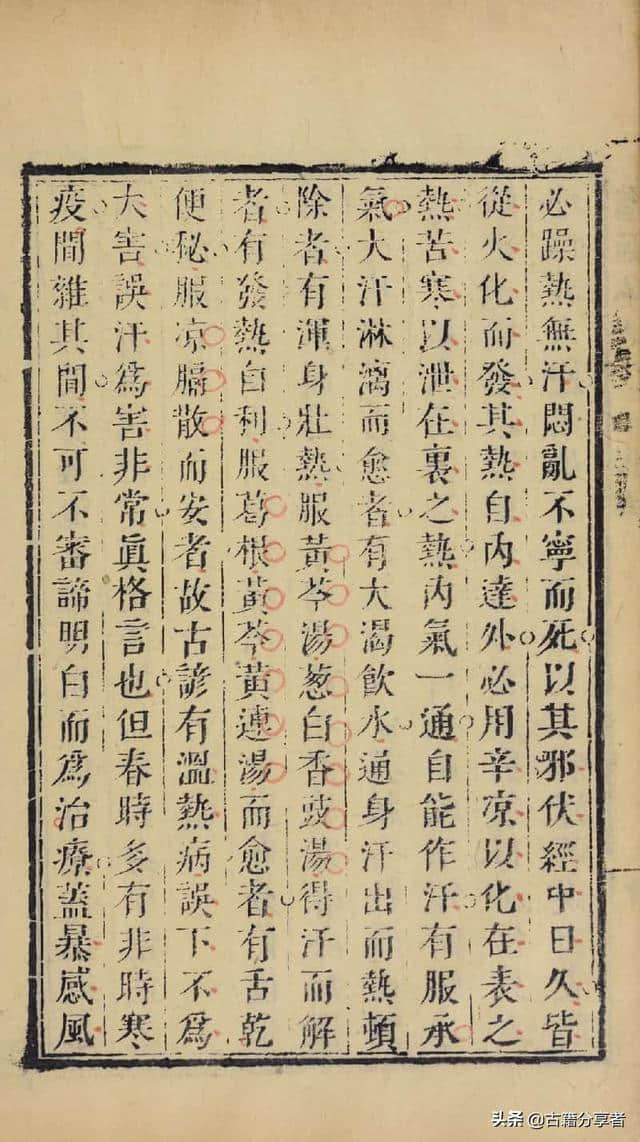 必躁熱無汗悶亂不寧而死以其邪伏經中日久皆
從火化而發其熱自內達外必用辛凉以化在表之
熱苦寒以泄在裏之熱內氣一通自能作汗有服承
氣大汗淋漓而愈者有大渴飲水通身汗出而熱頓
除者有渾身壯熱服黃芩湯葱白香豉湯得汗而解
者有發熱自利服葛根黃芩黃連湯而愈者有舌乾
便秘服凉膈散而安者故古諺有溫熱病誤下不爲
大害誤汗爲害非常眞格言也但春時多有非時寒
疫間雜其間不可不審諦明白而爲治療蓋暴感風
头条 @古籍分享者